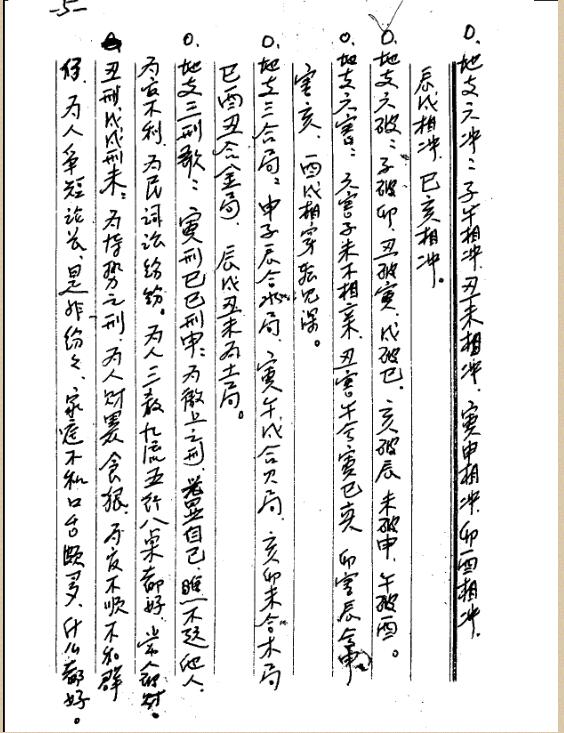 -5-
0.地支六冲：子午相冲.丑未相冲.寅申相冲.卯酉相冲.
辰戌相冲.巳亥相冲。
0.地支六破：子破卯.丑破寅.戌破巳.亥破辰 未破申.午破酉。
0.地支六害：六害子未不相亲.丑害午兮寅巳亥 卯害辰兮申
害亥 酉戌相穿转见深。
0.地支三合局：申子辰合水局.寅午戌合火局.亥卯未合木局
巳酉丑合金局.辰戌丑未为土局。
0.地支三刑歌：寅刑巳巳刑申：为 之刑. 自己.瞧不起他人.
为官不利.为民词讼纷纷。为人三教九流五行八桌都好.
丑刑戌戌刑未：为恃势之刑.为人财 贪狠. 不顺不和群
为人争短论长.是非纷々、家庭不和口舌颇多.什么都好。